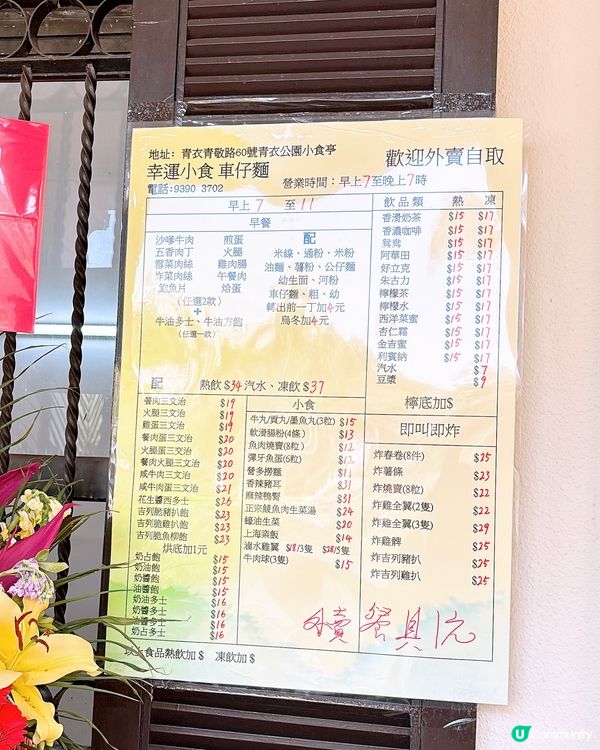 地址: 青衣青敬路60號青衣公園小食亭
歡迎外賣自取
幸運小食 車仔麵
電話:9390 3702
營業時間:早上7至晚上7時
早上 7 至 11
早餐
沙嗲牛肉 煎蛋
五香肉丁 火腿
雪菜肉絲 雞肉腸
炸菜肉絲 午餐肉
鮑魚片 烚蛋
(任選2款)
+
牛油多士、牛油方飽
(任選一款)
配
米線、通粉、米粉
油麵、薯粉、公仔麵
幼生面、河粉
車仔麵、粗、幼
轉出前一丁加4元
烏冬加4元
配 熱飲 $34 汽水、凍飲 $37
飲品類 熱 凍
香滑奶茶 $15 $17
香濃咖啡 $15 $17
鴛鴦 $15 $17
阿華田 $15 $17
好立克 $15 $17
朱古力 $15 $17
檸檬茶 $15 $17
檸檬水 $15 $17
西洋菜蜜 $15 $17
杏仁霜 $15 $17
金吉蜜 $15 $17
利賓納 $15 $17
汽水 $7
豆漿 $9
檸底加$
餐肉三文治 $19
火腿三文治 $19
雞蛋三文治 $19
餐肉蛋三文治 $20
火腿蛋三文治 $20
餐肉火腿三文治 $20
咸牛肉三文治 $20
咸牛肉蛋三文治 $21
花生醬西多士 $26
吉列脆豬扒飽 $23
吉列脆雞扒飽 $23
吉列脆魚柳飽 $23
烘底加1元
奶占飽 $15
奶油飽 $15
奶醬飽 $15
油醬飽 $15
奶油多士 $16
奶醬多士 $16
油醬多士 $16
奶占多士 $16
小食
牛丸/貢丸/墨魚丸(3粒) $15
軟滑腸粉(4條) $13
魚肉燒賣(8粒) $12
彈牙魚蛋(6粒) $12
營多撈麵 $11
香辣豬耳 $31
麻辣鴨腎 $31
正宗鯪魚肉生菜湯 $24
蠔油生菜 $20
上海粢飯 $14
滷水雞翼 $18/3隻 $28/5隻
牛肉球(3隻) $15
即叫即炸
炸春卷(8件) $25
炸薯條 $23
炸燒賣(8粒) $22
炸雞全翼(2隻) $22
炸雞全翼(3隻) $29
炸雞髀 $25
炸吉列豬扒 $25
炸吉列雞扒 $25
外賣餐具1元
以上食品熱飲加$ 凍飲加$
U Community